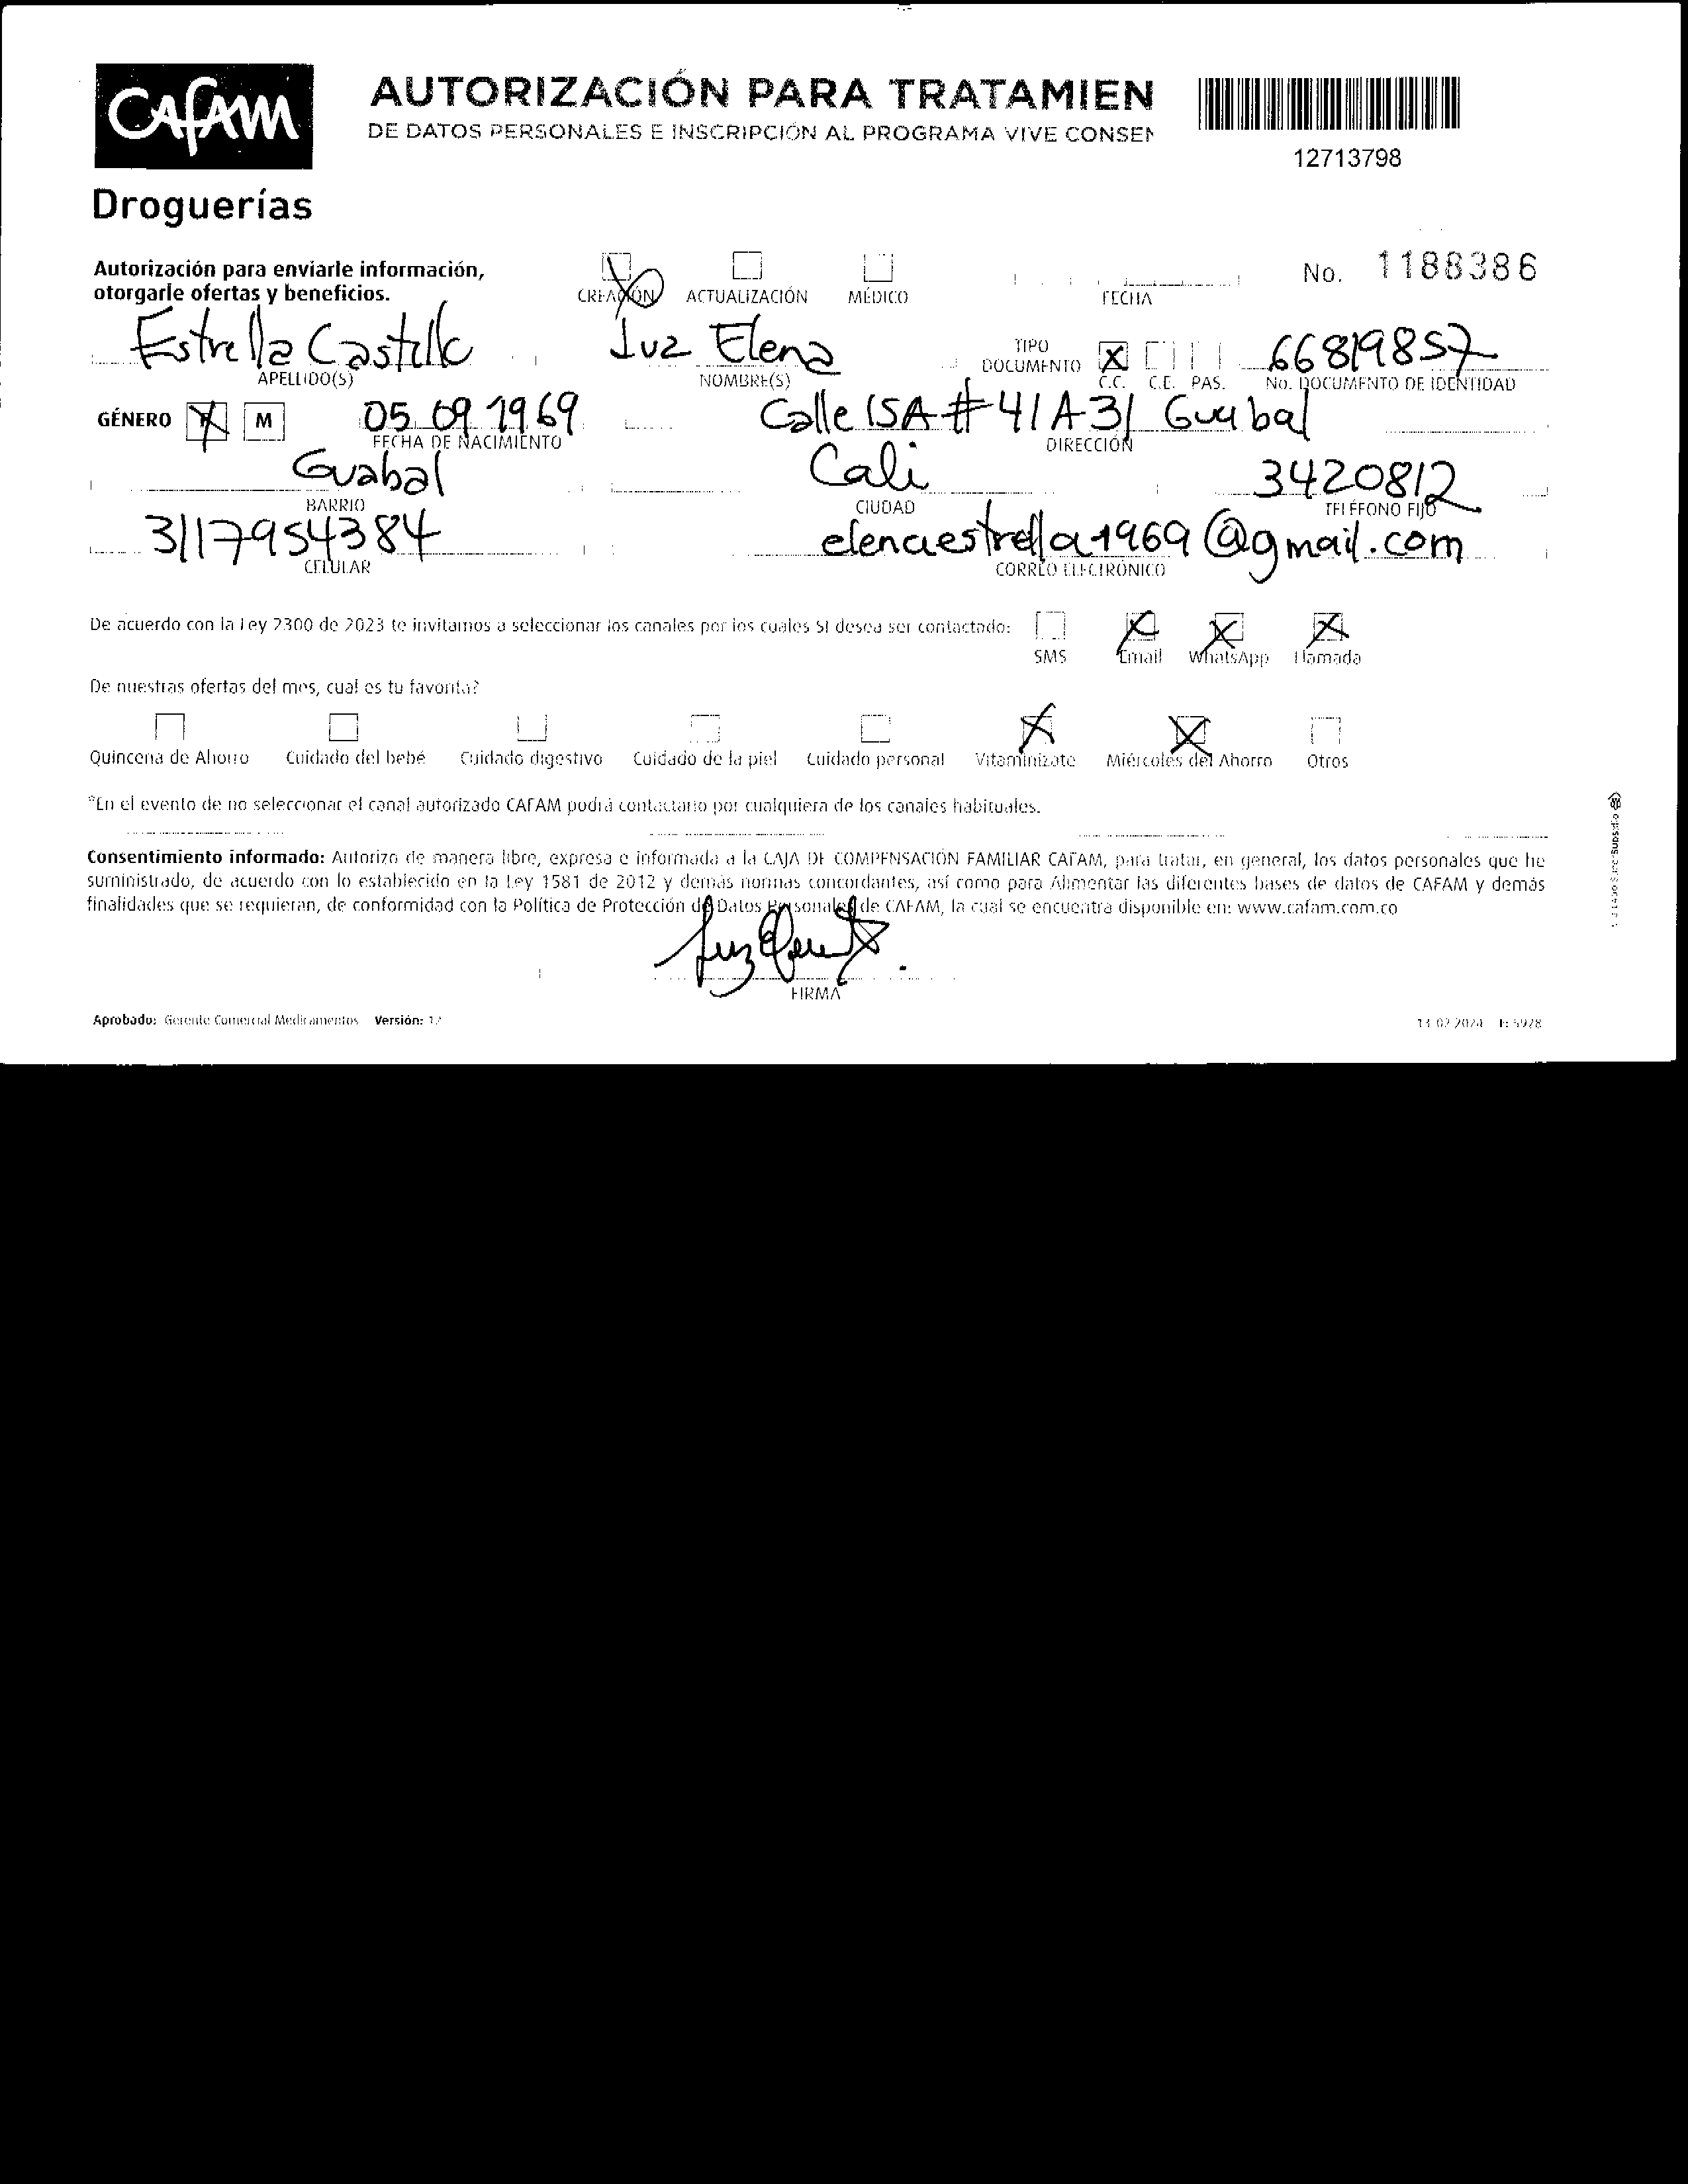 CAFAM
AUTORIZACIÓN PARA TRATAMIEN
DE DATOS PERSONALES E INSCRIPCIÓN AL PROGRAMA VIVE CONSEN
12713798
Droguerías
Autorización para enviarle información,
otorgarle ofertas y beneficios.
CREACIÓN ACTUALIZACIÓN MÉDICO
FECHA
No. 1188386
Estrella Castillo Luz Elena TIPO DOCUMENTO X 66819857
APELLIDO(S) NOMBRE(S) C.C. C.E. PAS. No. DOCUMENTO DE IDENTIDAD
GÉNERO F M 05 09 1969 Calle 15A # 41A31 Guabal
FECHA DE NACIMIENTO DIRECCIÓN
Guabal Cali 3420812
BARRIO CIUDAD TELÉFONO FIJO
3117954384 elenaestrella1969@gmail.com
CELULAR CORREO ELECTRÓNICO
De acuerdo con la Ley 2300 de 2023 te invitamos a seleccionar los canales por los cuales SI desea ser contactado:
SMS Email WhatsApp Llamada
De nuestras ofertas del mes, cual es tu favorita?
Quincena de Ahorro Cuidado del bebé Cuidado digestivo Cuidado de la piel Cuidado personal Vitaminízate Miércoles del Ahorro Otros
*En el evento de no seleccionar el canal autorizado CAFAM podrá contactarlo por cualquiera de los canales habituales.
Consentimiento informado: Autorizo de manera libre, expresa e informada a la CAJA DE COMPENSACIÓN FAMILIAR CAFAM, para tratar, en general, los datos personales que he
suministrado, de acuerdo con lo establecido en la Ley 1581 de 2012 y demás normas concordantes, así como para Alimentar las diferentes bases de datos de CAFAM y demás
finalidades que se requieran, de conformidad con la Política de Protección de Datos Personales de CAFAM, la cual se encuentra disponible en: www.cafam.com.co
FIRMA
Aprobado: Gerente Comercial Medicamentos Versión: 12
13-02-2024 F: 5928